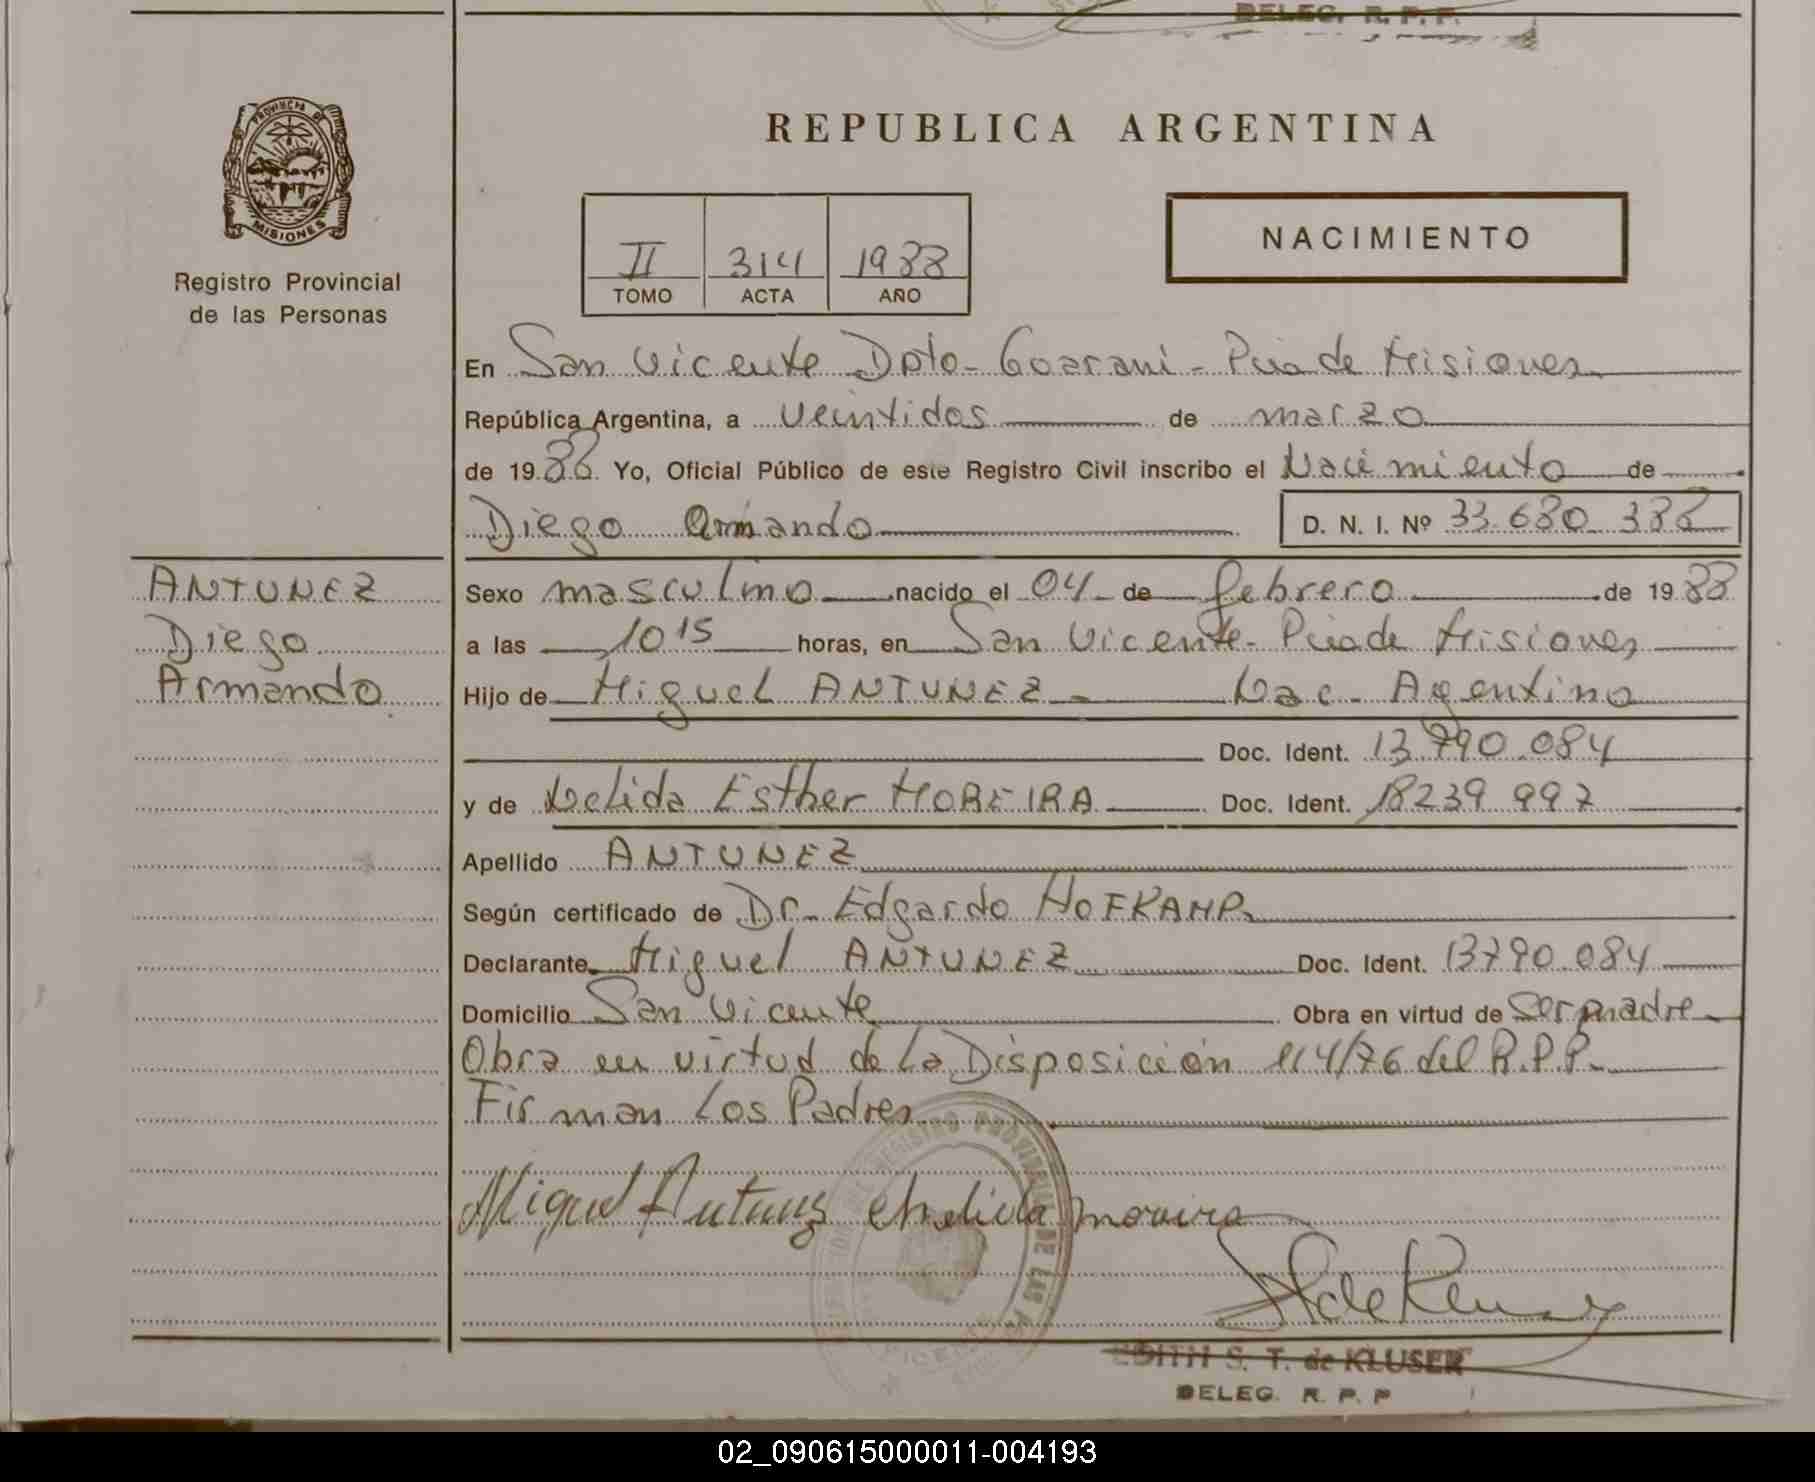 DELEG. R. P. P.
PROVINCIA DE
MISIONES
Registro Provincial
de las Personas
REPUBLICA ARGENTINA
NACIMIENTO
II 314 1988
TOMO ACTA AÑO
En San Vicente Dpto- Guarani - Pcia de Misiones
República Argentina, a veintidos de marzo
de 1988 Yo, Oficial Público de este Registro Civil inscribo el Nacimiento de
Diego Armando D. N. I. Nº 33.680.388
ANTUNEZ
Diego
Armando
Sexo masculino nacido el 04 de febrero de 1988
a las 10 15 horas, en San Vicente- Pcia de Misiones
Hijo de Miguel ANTUNEZ - Nac- Agentino
Doc. Ident. 13.790.084
y de Nelida Esther MOREIRA Doc. Ident. 18239997
Apellido ANTUNEZ
Según certificado de Dr. Edgardo HOFKAMP
Declarante Miguel ANTUNEZ Doc. Ident. 13790.084
Domicilio San Vicente Obra en virtud de ser padre
Obra en virtud de La Disposición 114/76 del R.P.P.
Firman Los Padres
Miguel Antunez Nelida moreira
EDITH S. T. de KLUSER
DELEG. R. P. P
02_090615000011-004193